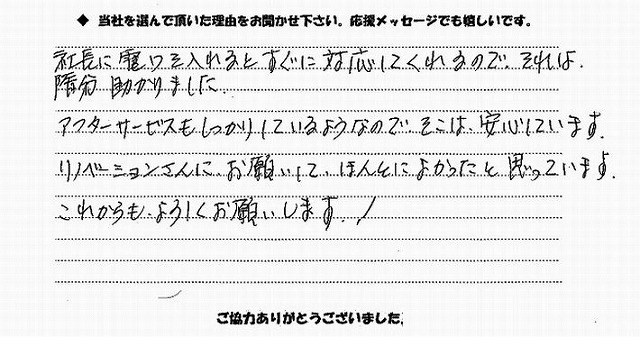 ◆ 当社を選んで頂いた理由をお聞かせ下さい。応援メッセージでも嬉しいです。
社長に電口を入れるとすぐに対応してくれるので、それは、
随分助かりました。
アフターサービスもしっかりしているようなのでそこは、安心しています。
リノベーションさんに、お願いして、ほんとによかったと思っています。
これからも、よろしくお願いします。!
ご協力ありがとうございました。